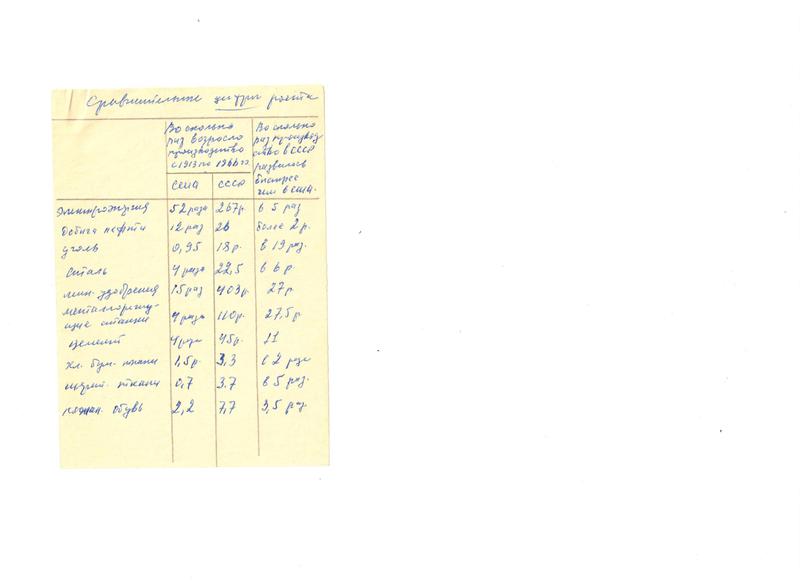 Сравнительные цифры роста
Во сколько раз возросло производство с 1913 по 1966 гг.
Во сколько раз производство в СССР развилось быстрее чем в США.
США СССР
Электроэнергия 52 раза 267р. в 5 раз
Добыча нефти 12 раз 26 более 2 р.
уголь 0,95 18 р. в 19 раз.
сталь 4 раза 22,5 в 6 р.
мин. удобрения 15 раз 403 р. 27 р.
металлорежу-
щие станки 4 раза 110р. 27,5 р.
цемент 4 раза 45р. 11
хл. бум. ткани 1,5р. 3,3 в 2 раза
шерст. ткани 0,7 3.7 в 5 раз.
кожан. обувь 2,2 7,7 3,5 раз.